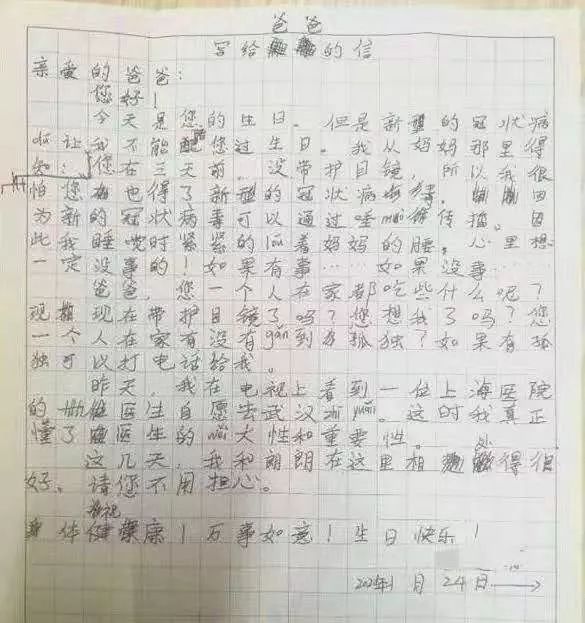 爸爸
写给的信
亲爱的爸爸:
您好!
今天是您的生日。但是新型的冠状病
让我不能陪您过生日。我从妈妈那里得
知:您在三天前,没带护目镜,所以我很
怕您也得了新型的冠状病毒,因
为新的冠状病毒可以通过唾传播。因
此我睡觉时紧紧的lōu着妈妈的腰。心里想
一定没事的!如果有事……如果没事……
爸爸,您一个人在家都吃些什么呢?
现在带护目镜了吗?您想我了吗?您
一个人在家有没有gǎn到孤独?如果有孤
独可以打电话给我。
昨天,我在电视上看到一位上海医院
的医生自愿去武汉yuán。这时我真正
懂了医生的wěi大性和重要性。
这几天,我和朗朗在这里相处得很
好。请您不用担心。
祝
身体健康!万事如意!生日快乐!
1月24日